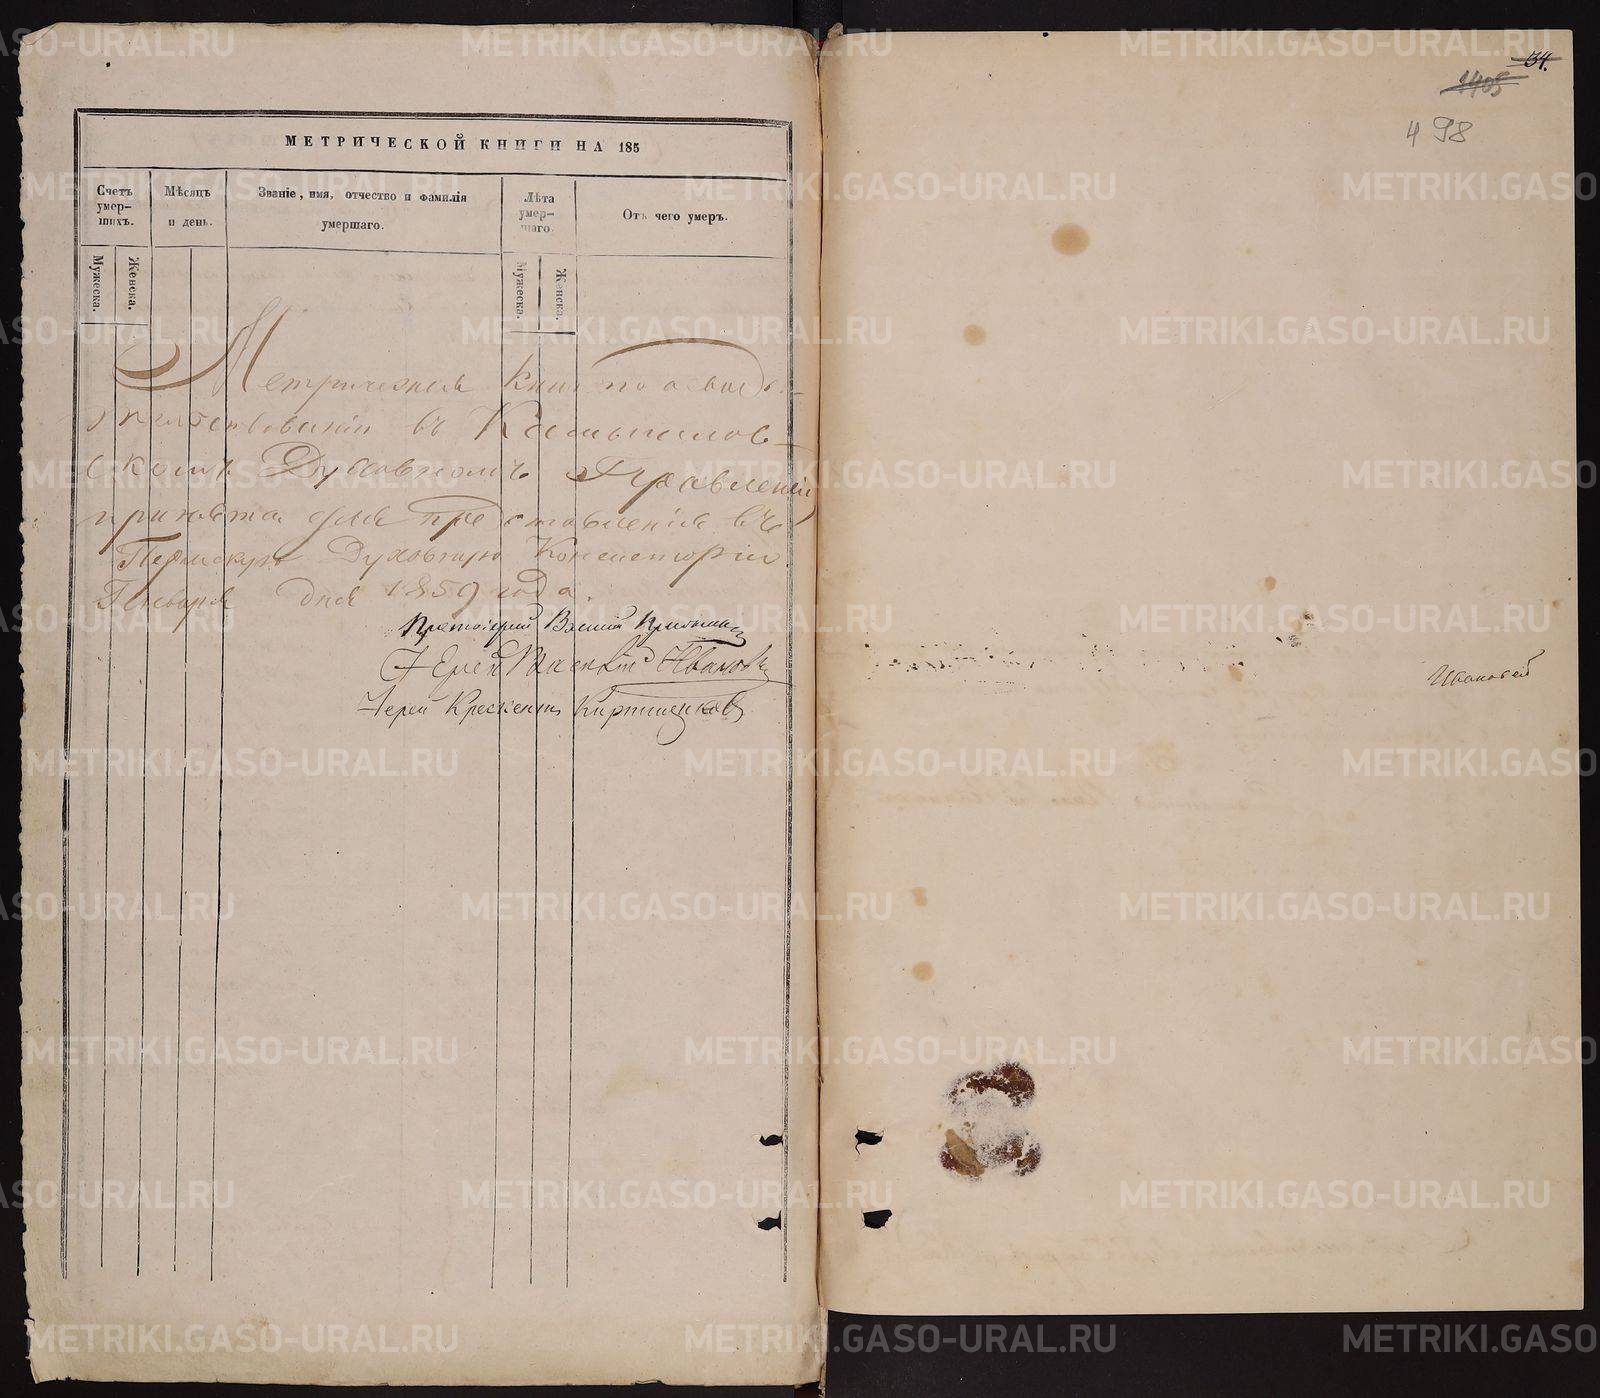 МЕТРИЧЕСКОЙ КНИГИ НА 185
Счетъ умер-шихъ.
Мѣсяцъ и день.
Званіе, имя, отчество и фамилія умершаго.
Лѣта умер-шаго.
Отъ чего умеръ.
Мужеска.
Женска.
Мужеска.
Женска.
Метрическая Книга по освидѣ-
тельствованіи въ Камышлов-
скомъ Духовномъ Правленіи
принята для представленія въ
Пермскую Духовную Консисторію.
Генваря дня 1859 года.
Протоіерей Василій
Іерей Василій Ивановъ
Іерей Крескентъ Кирпищиковъ
34.
1405
498
METRIKI.GASO-URAL.RU